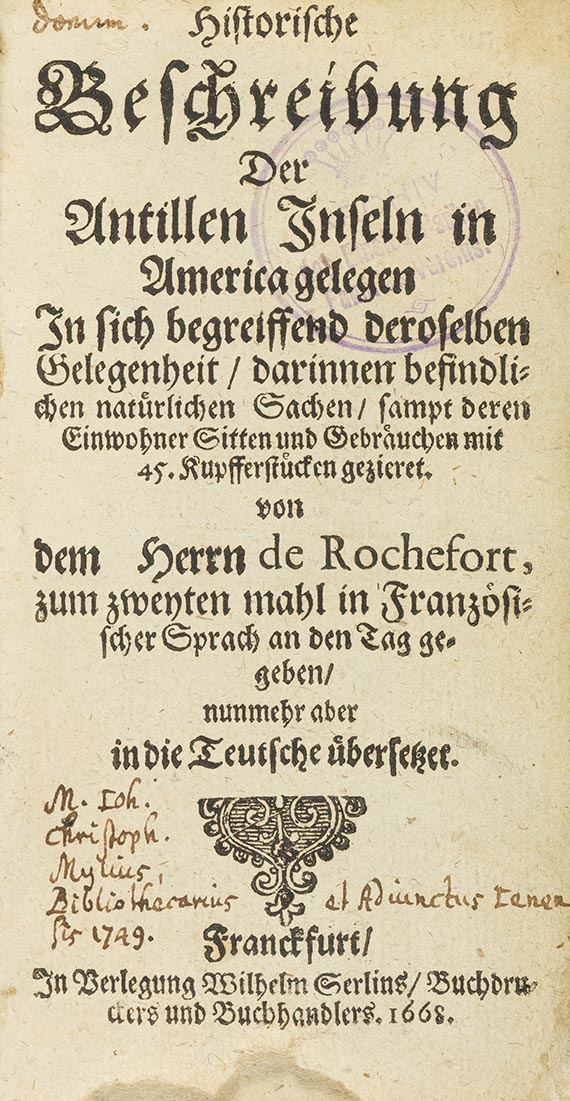 donum.
Historische
Beschreibung
Der
Antillen Inseln in
America gelegen
In sich begreiffend deroselben
Gelegenheit / darinnen befindli-
chen natürlichen Sachen / sampt deren
Einwohner Sitten und Gebräuchen mit
45. Kupfferstücken gezieret.
von
dem Herrn de Rochefort,
zum zweyten mahl in Französi-
scher Sprach an den Tag ge-
geben /
nunmehr aber
in die Teutsche übersetzet.
M. Ioh.
Christoph.
Mylius,
Bibliothecarius et Adiunctus Ienen
sis 1749.
Franckfurt /
In Verlegung Wilhelm Serlins / Buchdru-
ckers und Buchhandlers. 1668.